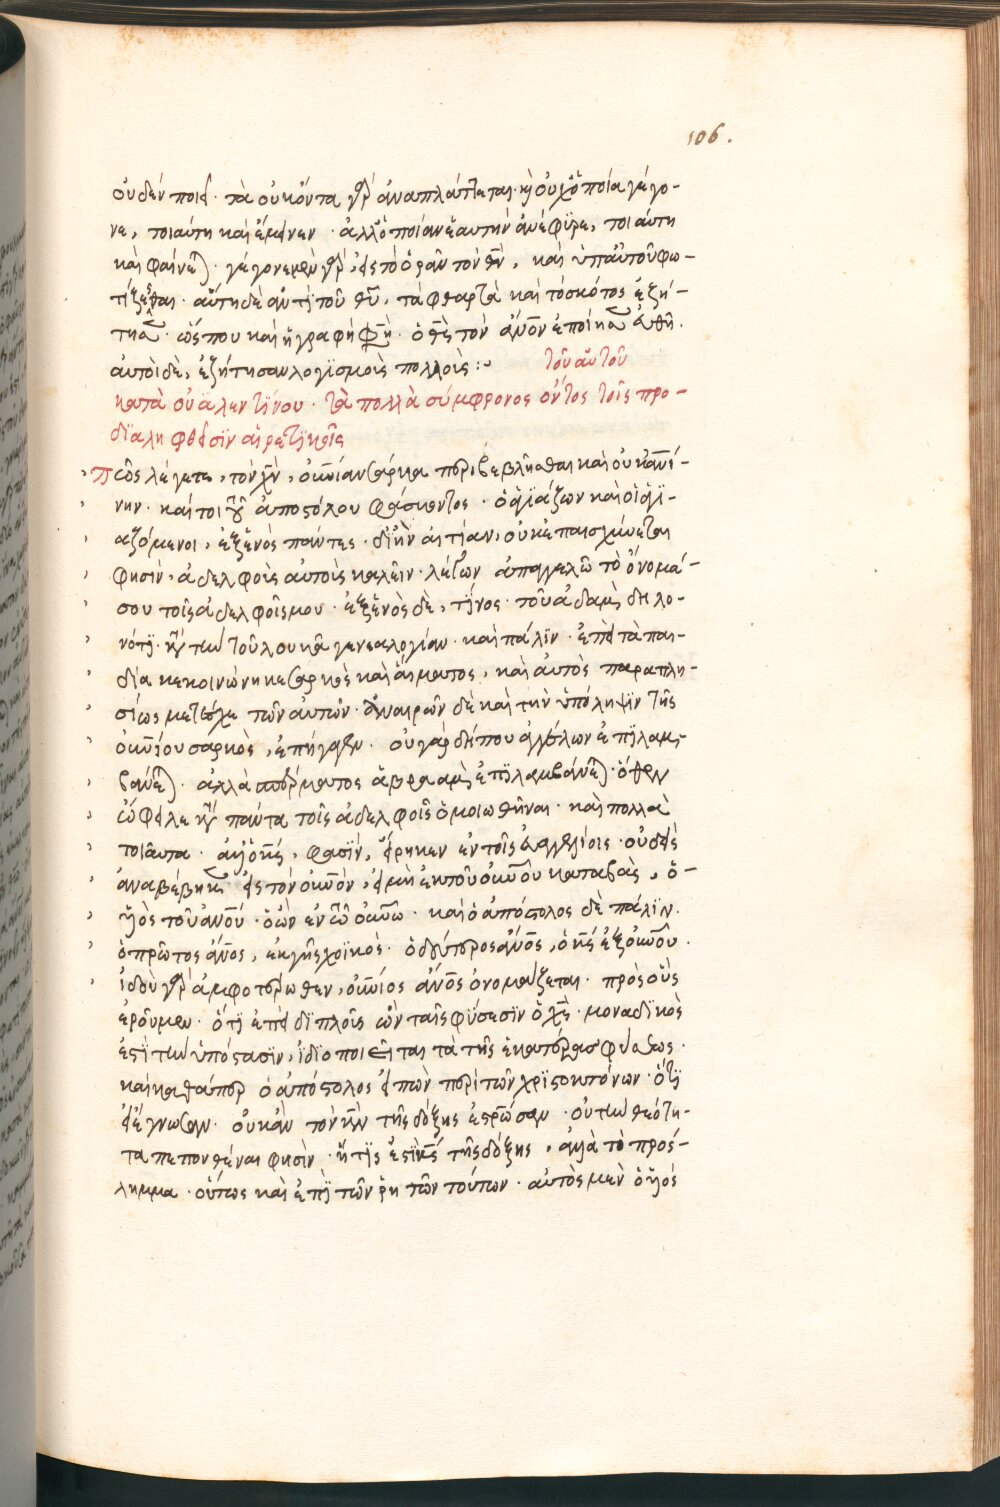 106.
οὐδέν ποιεῖ · τὰ οὐκ ὄντα γὰρ ἀναπλάττεται · καὶ οὐχ ὁποία γέγο-
νε, τοιαύτη καὶ ἔμεινεν · ἀλλ' ὁποίαν ἑαυτὴν ἀνέφϋρε, τοιαύτη
καὶ φαίνεται · γέγονε μὲν γὰρ, εἰς τὸ ὁρᾶν τὸν θν̄, καὶ ὑπ' αὐτοῦ φω-
τίζεσθαι · αὕτη δὲ ἀντὶ τοῦ θῡ, τὰ φθαρτὰ καὶ τὸ σκότος ἐζή-
τησε · ὥς που καὶ ἡ γραφή φησϊ · ὁ θς̄ τὸν ἄνον ἐποίησε εὐθῆ ·
αὐτοὶ δὲ, ἐζήτησαν λογϊσμοὺς πολλούς :~ τοῦ αὐτοῦ
κατὰ οὐαλεντίνου · τὰ πολλὰ σύμφρονος ὄντος τοῖς προ-
δϊαληφθεῖσϊν αἱρετϊκοῖς
πῶς λέγετε, τὸν χν̄, οὐνίαν σάρκα περιβεβλῆσθαι καὶ οὐκ ἀνί-
νην · καί τοι γε ἀποστόλου φάσκοντος · ὁ ἁγϊάζων καὶ οἱ ἁγϊ-
αζόμενοι, ἐξ ἑνὸς πάντες · δι' ἣν αἰτίαν, οὐκ ἐπαισχύνεται
φησὶν · ἀδελφοὺς αὐτοὺς καλεῖν · λέγων ἀπαγγελῶ τὸ ὄνομά
σου τοῖς ἀδελφοῖς μου · ἐξ ἑνὸς δὲ, τίνος · τοῦ ἀδαμ, δηλο-
νότϊ · κατὰ τὴν τοῦ λουκᾶ γενεαλογίαν · καὶ πάλϊν · ἐπεὶ τὰ παι-
δία κεκοινώνηκε σαρκὸς καὶ αἵματος, καὶ αὐτὸς παραπλη-
σίως μετέσχε τῶν αὐτῶν · ἀναιρῶν δὲ καὶ τὴν ὑπόληψϊν τῆς
οὐνίου σαρκὸς, ἐπήγαγεν · οὐ γὰρ δήπου ἀγγέλων ἐπϊλαμ-
βάνεται · ἀλλὰ σπέρματος ἀβραὰμ, ἐπϊλαμβάνεται · ὅθεν
ὤφειλε κατὰ πάντα τοῖς ἀδελφοῖς ὁμοιωθῆναι · καὶ πολλὰ
τοιαῦτα · ἀλλ' ὁ κς̄, φασϊν, εἴρηκεν ἐν τοῖς εὐαγγελίοις · οὐδεὶς
ἀναβέβηκεν εἰς τὸν οὐνὸν, εἰ μὴ ἐκ τοῦ οὐνοῦ καταβὰς, ὁ
ϋἱὸς τοῦ ἀνοῦ · ὁ ὢν ἐν τῶ οὐνῶ · καὶ ὁ ἀπόστολος δὲ πάλϊν ·
ὁ πρῶτος ἄνος, ἐκ γῆς χοϊκός · ὁ δεύτερος ἄνος, ὁ κς̄ ἐξ οὐνοῦ ·
ἰδοὺ γὰρ ἀμφοτέρωθεν, οὐνίος ἄνος ὀνομάζεται · πρὸς οὓς
ἐροῦμεν · ὅτϊ ἐπεὶ δϊπλοῦς ὢν ταῖς φύσεσϊν ὁ χς̄ · μοναδϊκὸς
ἐστὶ τὴν ὑπόστασϊν, ἰδϊοποιεῖται τὰ τῆς ἑκατέρας φύσεως ·
καὶ καθάπερ ὁ ἀπόστολος εἰπὼν περὶ τῶν χρϊστοκτόνων · ὅτϊ
εἰ ἔγνωσαν · οὐκ ἂν τὸν κν̄ τῆς δόξης ἐστρωσαν · οὐ τὴν θεότη-
τα πεπονθέναι φησὶν · ἥτϊς ἐστὶ κς̄ τῆς δόξης, ἀλλὰ τὸ πρόσ-
λημμα · οὕτως καὶ ἐπὶ τῶν ῥητῶν τούτων · αὐτὸς μὲν ὁ ϋἱός